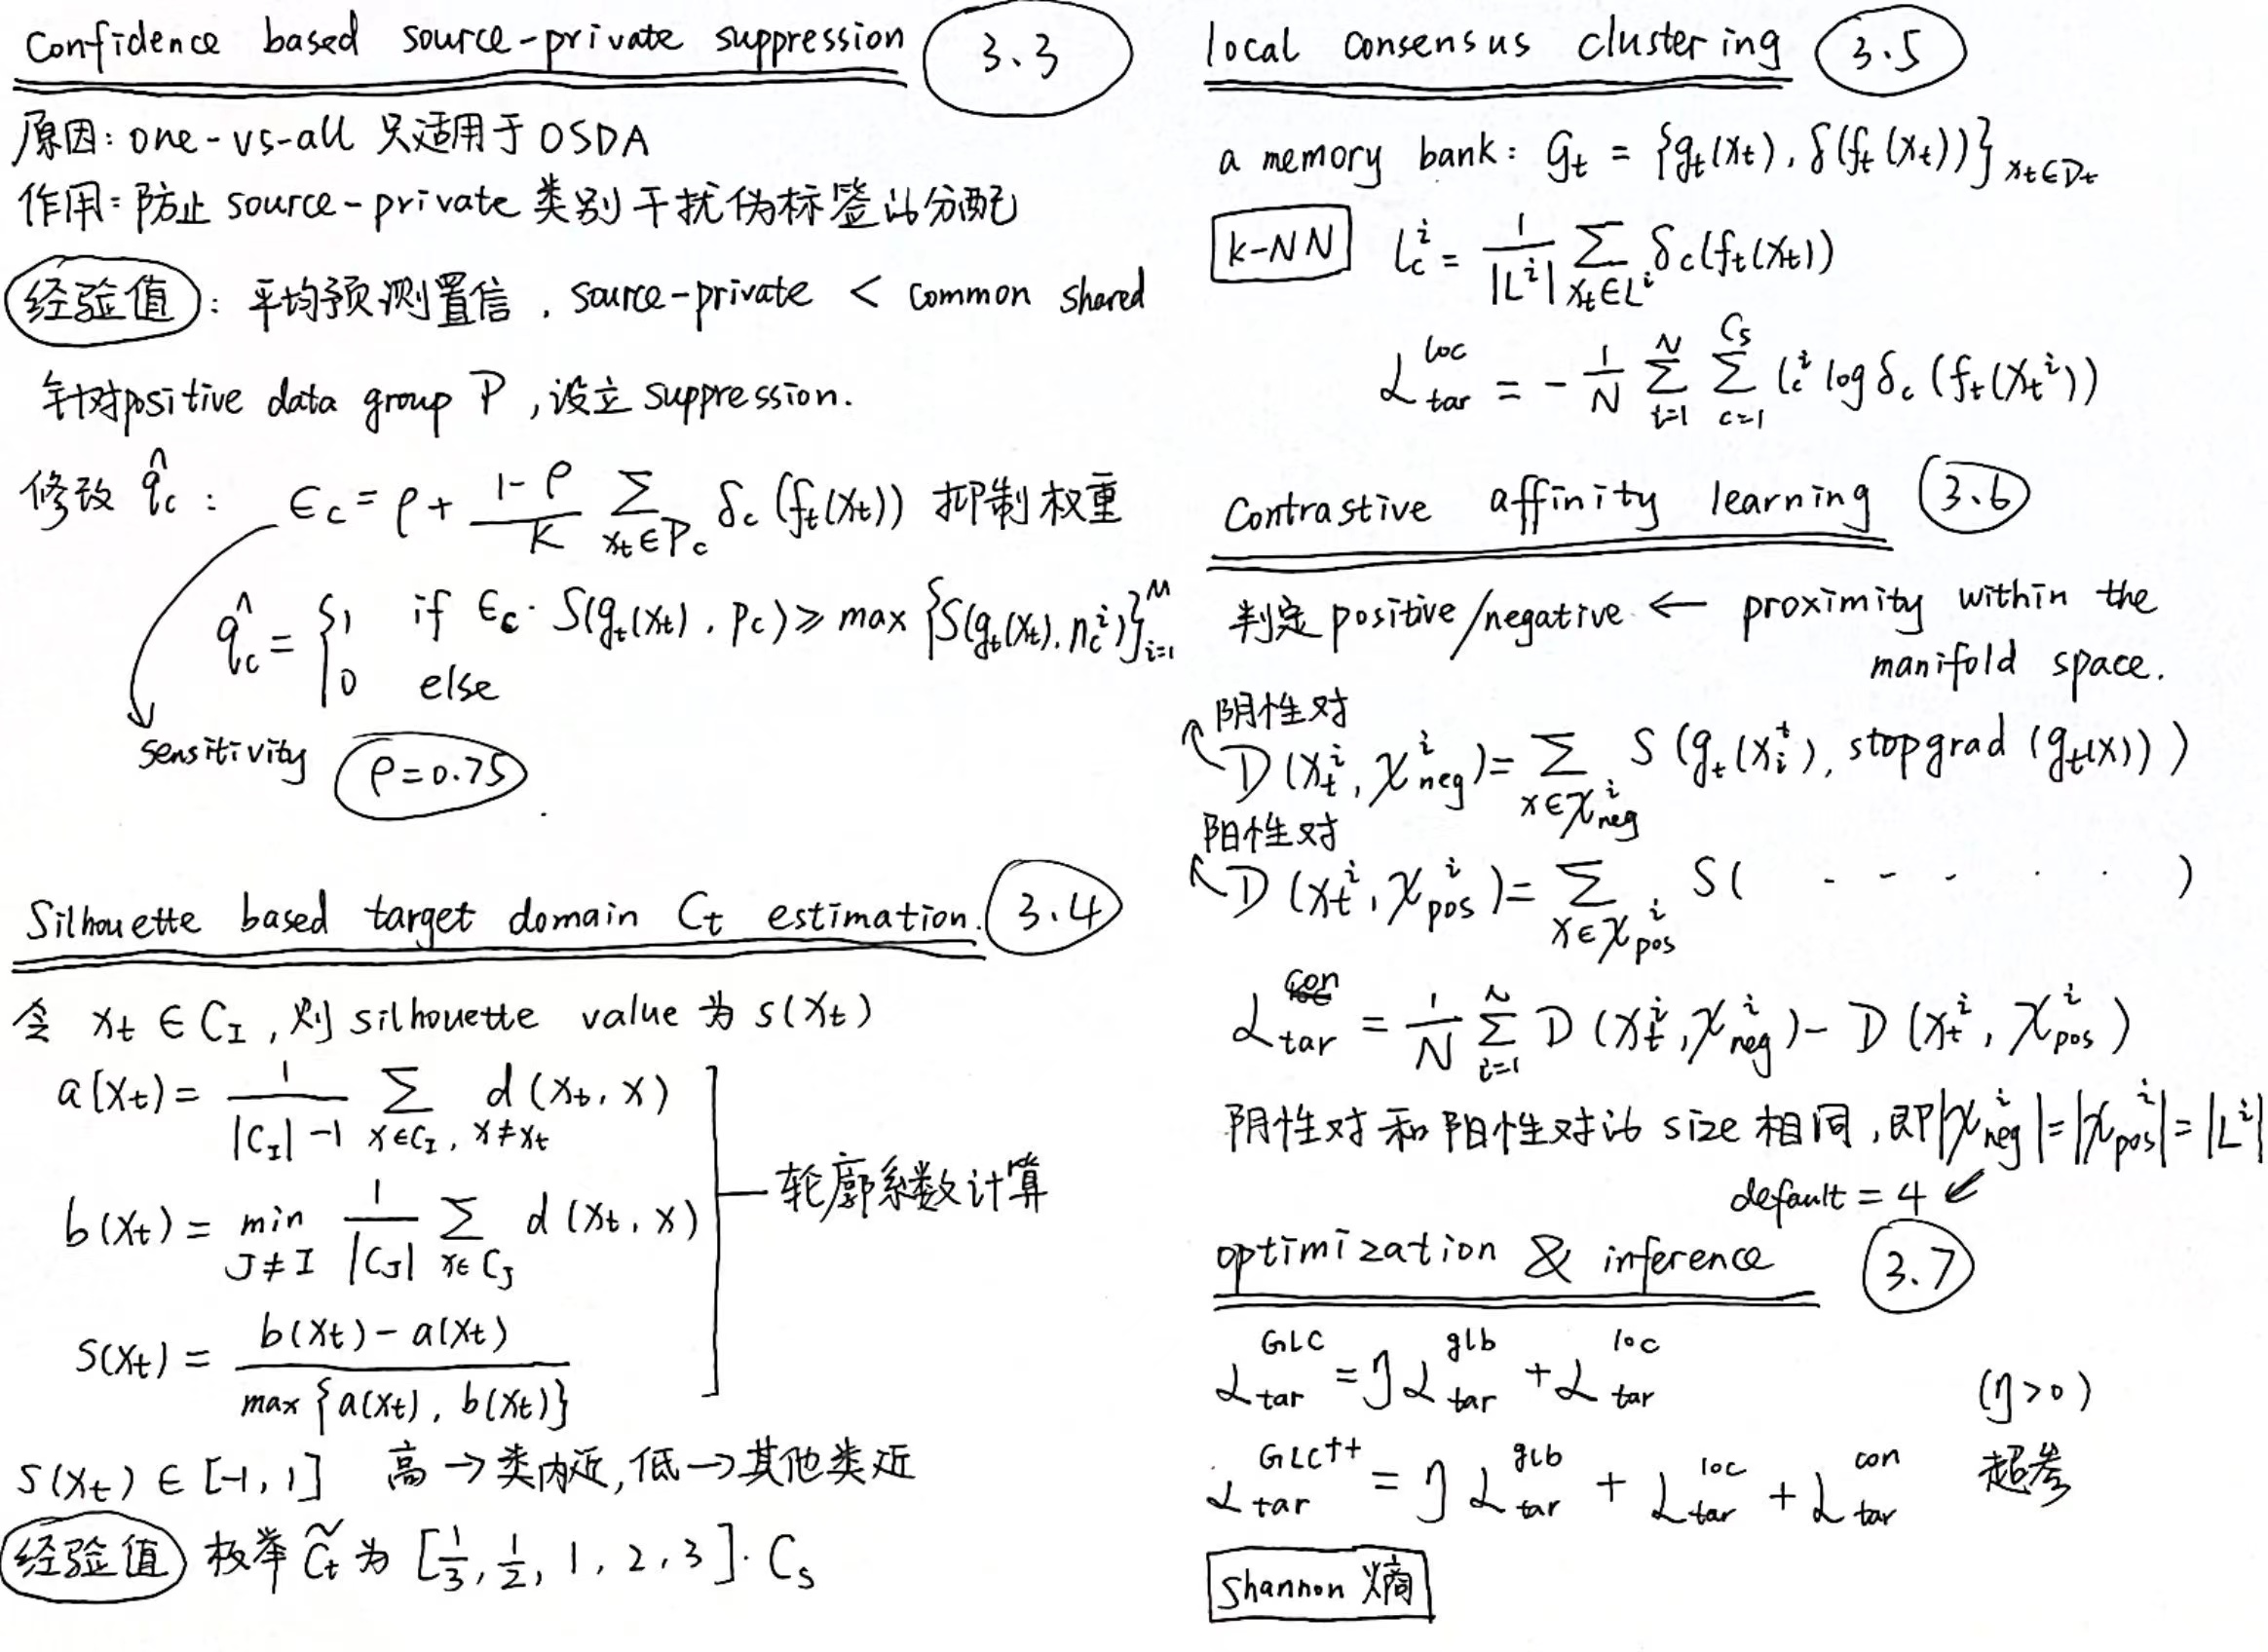 Confidence based source-private suppression 3.3
原因: one-vs-all 只适用于 OSDA
作用: 防止 source-private 类别干扰伪标签的分配
经验值: 平均预测置信, source-private < common shared
针对positive data group P, 设立 suppression.
修改 q̂c: ϵc = ρ + (1-ρ)/K Σ_{xt∈Pc} δc(ft(xt)) 抑制权重
q̂c = { 1 if ϵc · S(gt(xt), pc) ≥ max {S(gt(xt), nc^i)}_{i=1}^M
0 else
sensitivity ρ=0.75
Silhouette based target domain Ct estimation. 3.4
令 xt ∈ C_I, 则 silhouette value 为 s(xt)
a(xt) = 1/(|C_I|-1) Σ_{x∈C_I, x≠xt} d(xt, x)
b(xt) = min_{J≠I} 1/|C_J| Σ_{x∈C_J} d(xt, x)
轮廓系数计算
s(xt) = (b(xt) - a(xt)) / max{a(xt), b(xt)}
s(xt) ∈ [-1, 1] 高→类内近, 低→其他类近
经验值 枚举 C̃t 为 [1/3, 1/2, 1, 2, 3]· Cs
local consensus clustering 3.5
a memory bank: Gt = {gt(xt), δ(ft(xt))}_{xt∈Dt}
k-NN l_c^i = 1/|L^i| Σ_{xt∈L^i} δc(ft(xt))
L_tar^loc = - 1/N Σ_{i=1}^N Σ_{c=1}^{Cs} l_c^i log δc(ft(xt^i))
Contrastive affinity learning 3.6
判定 positive/negative ← proximity within the
manifold space.
阴性对
D(xt^i, X_neg^i) = Σ_{x∈X_neg^i} S(gt(x_i^t), stopgrad(gt(x)))
阳性对
D(xt^i, X_pos^i) = Σ_{x∈X_pos^i} S( - - - · · · )
L_tar^con = 1/N Σ_{i=1}^N D(xt^i, X_neg^i) - D(xt^i, X_pos^i)
阴性对和阳性对的 size 相同, 即|X_neg^i| = |X_pos^i| = |L^i|
default = 4
optimization & inference 3.7
L_tar^GLC = η L_tar^glb + L_tar^loc (η>0)
L_tar^GLC++ = η L_tar^glb + L_tar^loc + L_tar^con 超参
Shannon 熵